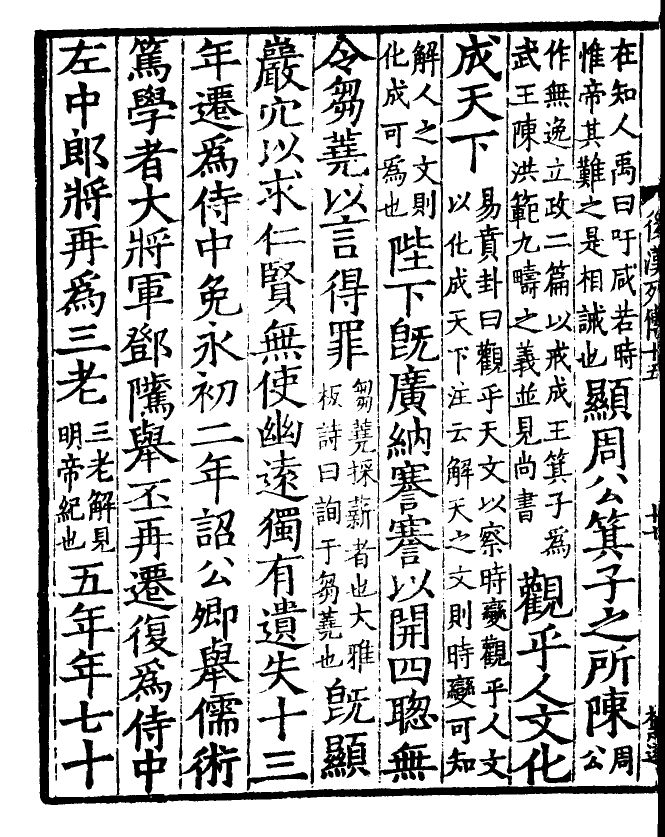 後漢列傳十五
在知人禹曰吁咸若時惟帝其難之是相誡也顯周公箕子之所陳周公
作無逸立政二篇以戒成王箕子為武王陳洪範九疇之義並見尚書觀乎人文化
成天下易賁卦曰觀乎天文以察時變觀乎人文以化成天下注云解天之文則時變可知
解人之文則化成可爲也陛下旣廣納謇謇以開四聦無
令芻蕘以言得罪芻蕘採薪者也大雅板詩曰詢于芻蕘也旣顯
巖穴以求仁賢無使幽遠獨有遺失十三
年遷爲侍中免永初二年詔公卿舉儒術
篤學者大將軍鄧騭舉丕再遷復爲侍中
左中郎將再爲三老三老解見明帝紀也五年年七十